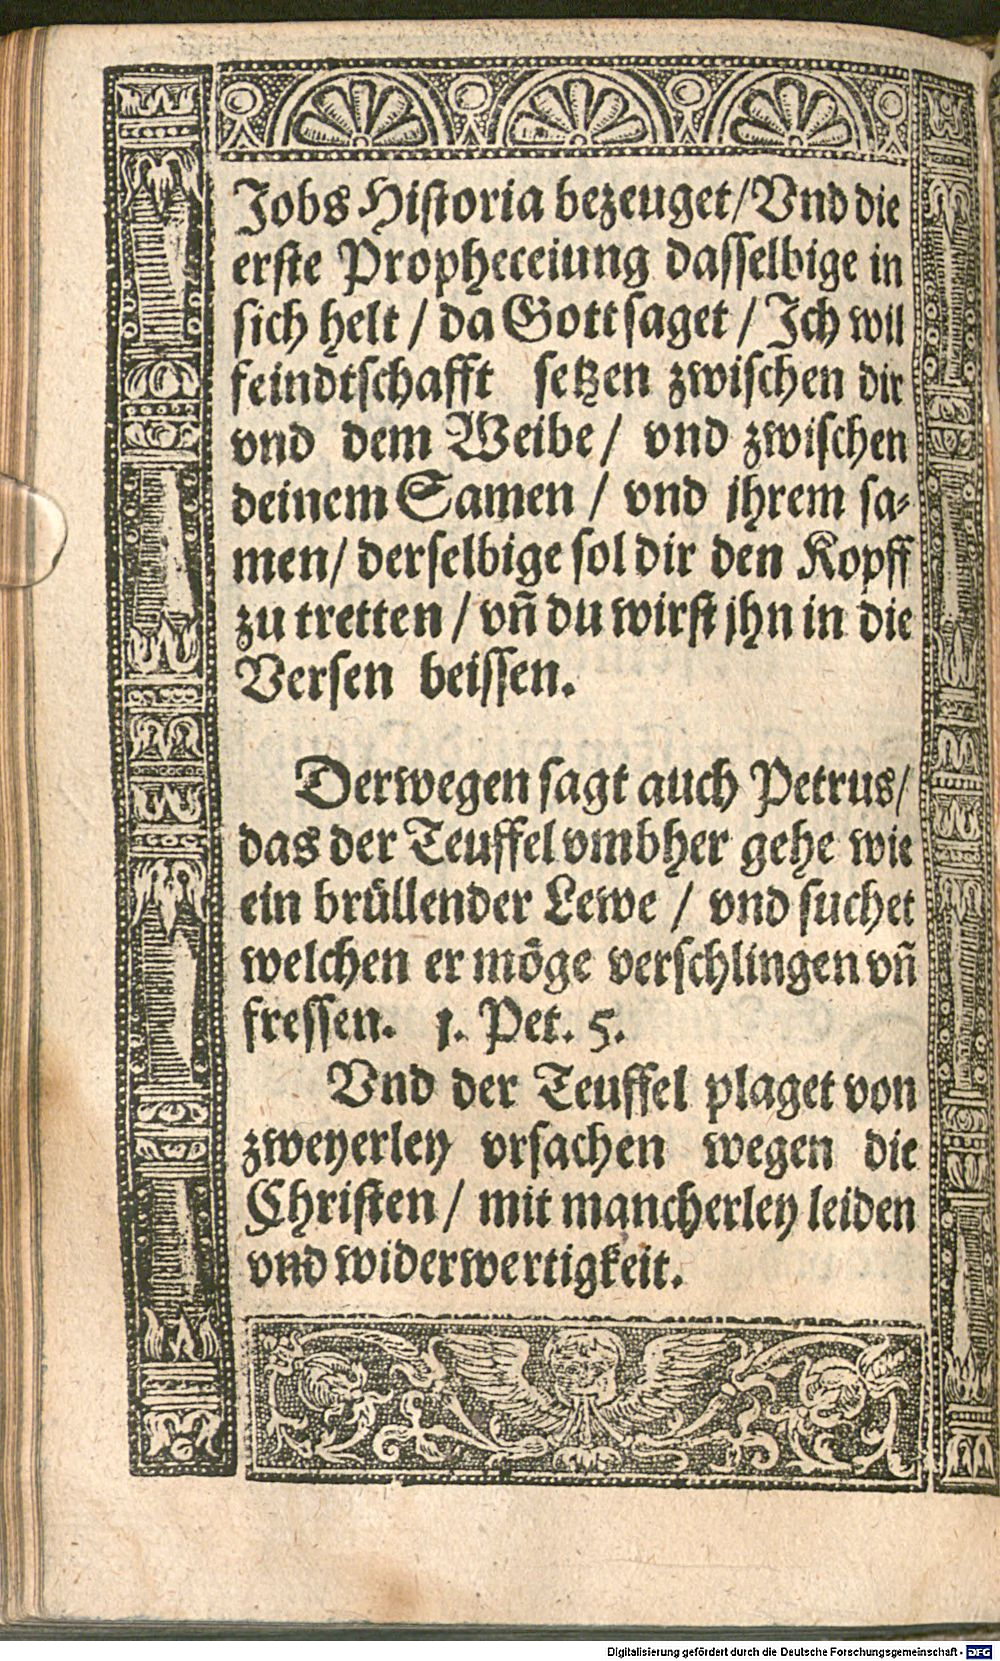 Jobs Historia bezeuget/Vnd die
erste Propheceiung dasselbige in
sich helt / da Gott saget / Jch wil
feindtschafft setzen zwischen dir
vnd dem Weibe / vnd zwischen
deinem Samen / vnd jhrem sa-
men / derselbige sol dir den Kopff
zu tretten / vñ du wirst jhn in die
Versen beissen.
Derwegen sagt auch Petrus /
das der Teuffel vmbher gehe wie
ein brüllender Lewe / vnd suchet
welchen er möge verschlingen vñ
fressen. 1. Pet. 5.
Vnd der Teuffel plaget von
zweyerley vrsachen wegen die
Christen / mit mancherley leiden
vnd widerwertigkeit.
Digitalisierung gefördert durch die Deutsche Forschungsgemeinschaft - DFG